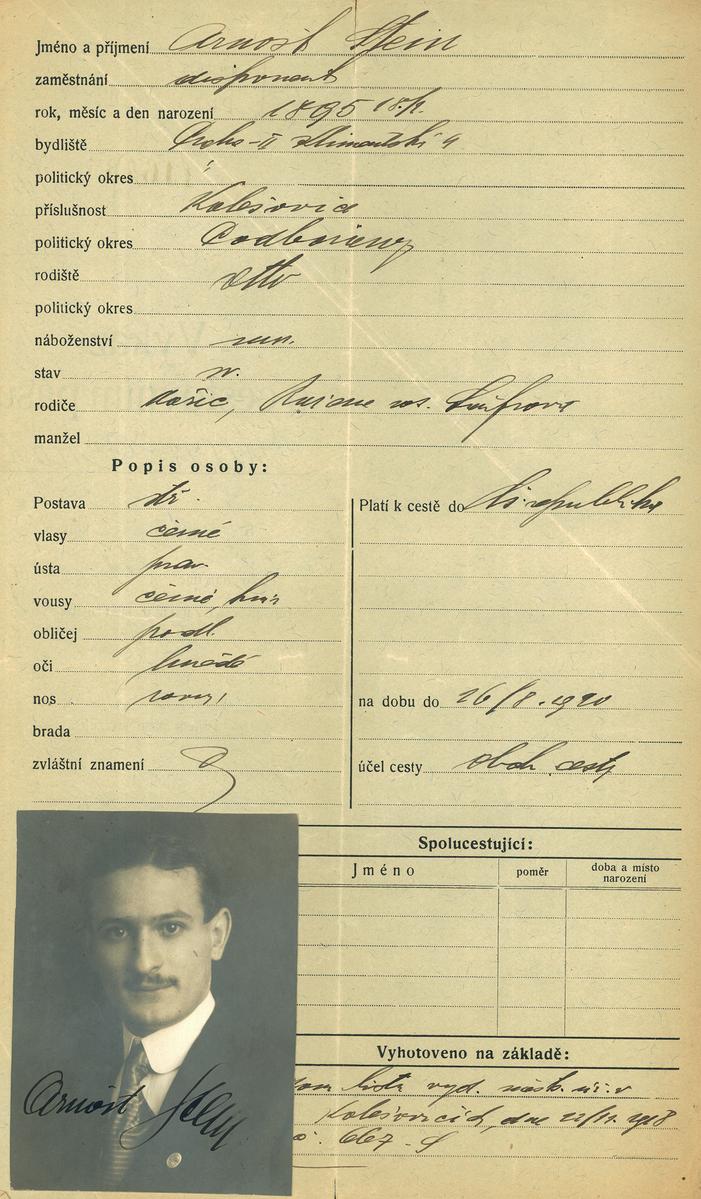 Jméno a příjmení Arnošt Stein
zaměstnání disponent
rok, měsíc a den narození 1895 18./
bydliště Praha-II Klimentská 4
politický okres
příslušnost Kolešovice
politický okres Podbořany
rodiště dtto
politický okres
náboženství
stav sv.
rodiče Mořic,
manžel
Popis osoby:
Postava stř.
Platí k cestě do republiky
vlasy černé
ústa prav.
vousy černé,
obličej podl.
oči hnědé
nos rovný
na dobu do 26/8. 1920
brada
zvláštní znamení
účel cesty obch. cesty
Spolucestující:
Jméno
poměr
doba a místo narození
Vyhotoveno na základě:
dom. listu vyd. v
Kolešovicích, dne 22/11. 1918
č. 667
Arnošt Stein